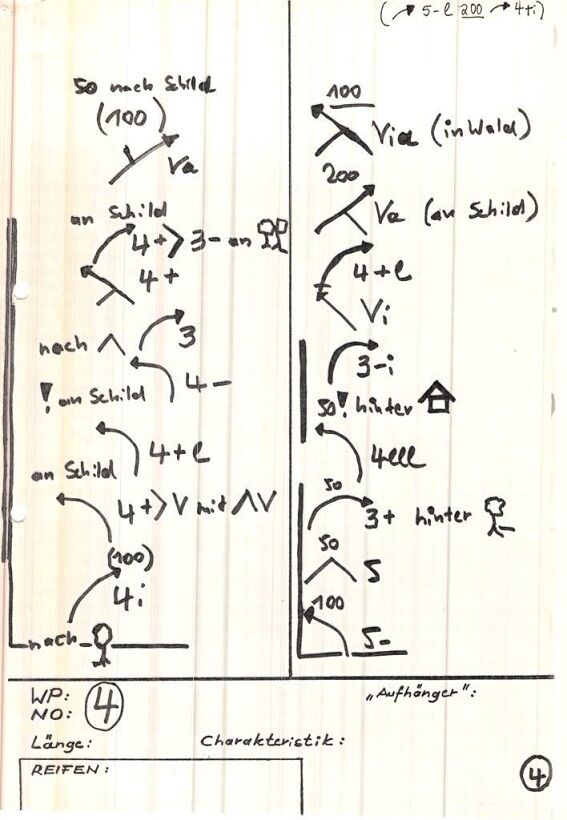 ( 5-l 200 4+i)
50 nach Schild
(100)
Va
an Schild
4+> 3- an
4+
nach
3
! an Schild
4-
4+l
an Schild
4+>V mit ΛV
(100)
4i
nach
100
Via (in Wald)
200
Va (an Schild)
4+l
Vi
3-i
50! hinter
4lll
50
3+ hinter
50
5
100
5-
WP:
NO:
4
„Aufhänger":
Länge:
Charakteristik:
REIFEN:
4